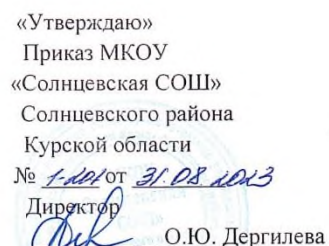 «Утверждаю»
Приказ МКОУ
«Солнцевская СОШ»
Солнцевского района
Курской области
№ 1-201 от 31.08.2023
Директор
О.Ю. Дергилева